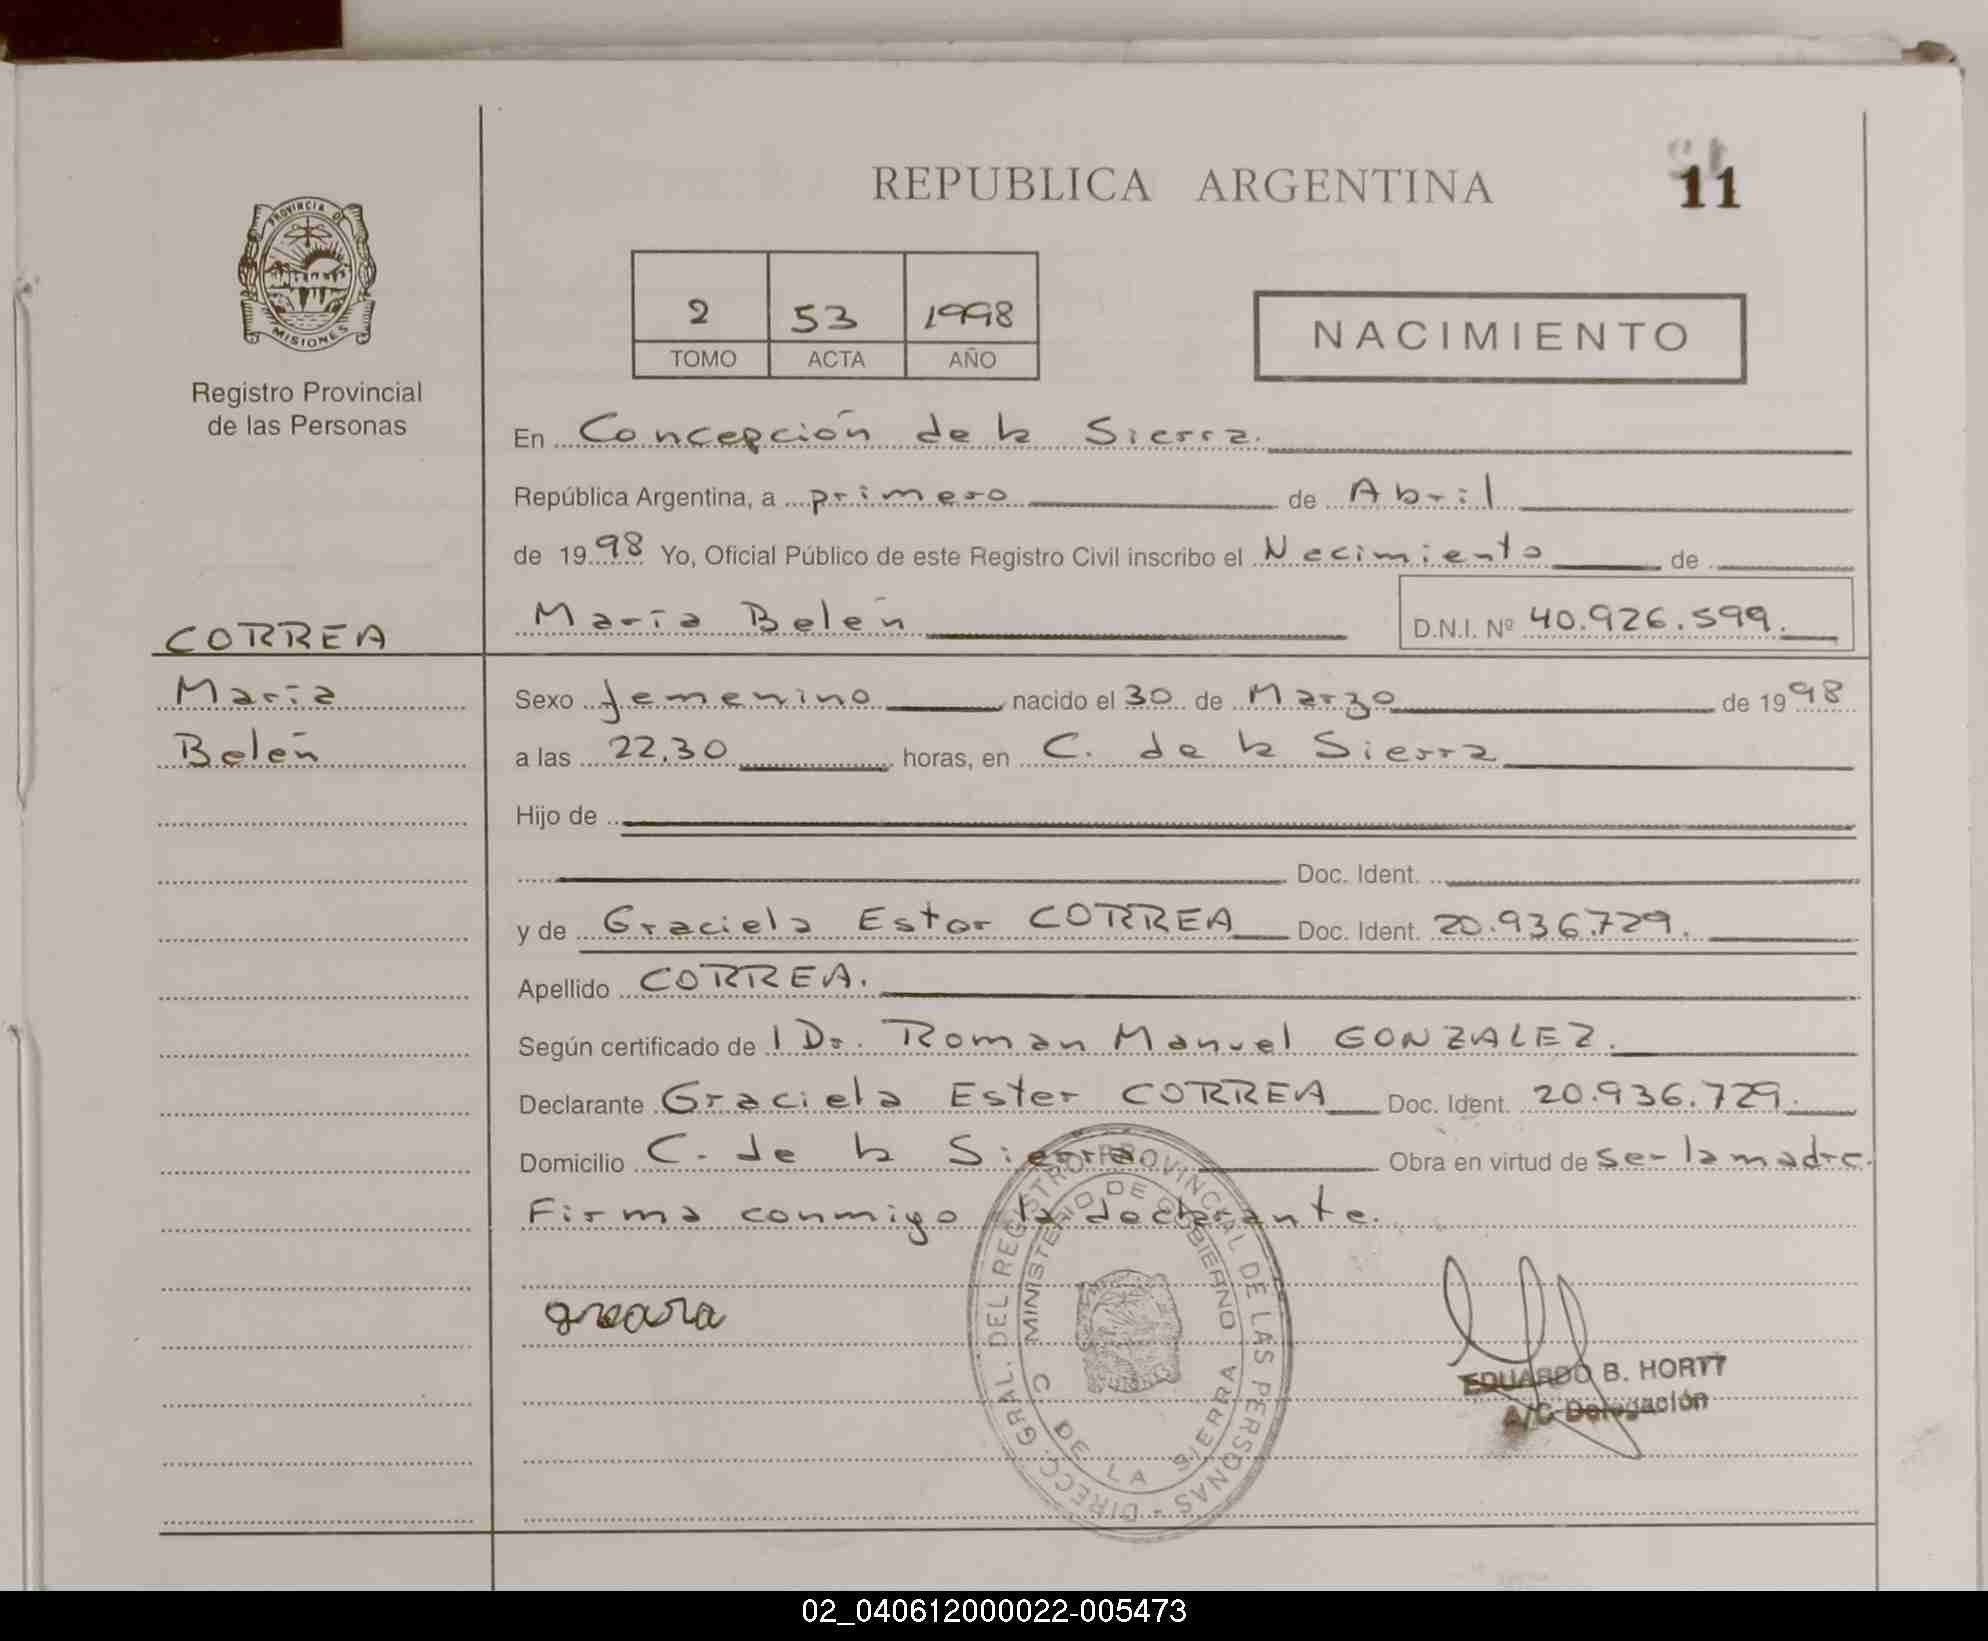 REPUBLICA ARGENTINA
11
PROVINCIA DE
MISIONES
Registro Provincial
de las Personas
2 53 1998
TOMO ACTA AÑO
NACIMIENTO
En Concepción de la Sierra.
República Argentina, a primero de Abril
de 1998 Yo, Oficial Público de este Registro Civil inscribo el Nacimiento de
María Belén D.N.I. Nº 40.926.599.
CORREA
María
Belén
Sexo femenino nacido el 30 de Marzo de 1998
a las 22.30 horas, en C. de la Sierra
Hijo de
Doc. Ident.
y de Graciela Ester CORREA Doc. Ident. 20.936.729.
Apellido CORREA.
Según certificado de l Dr. Roman Manuel GONZALEZ.
Declarante Graciela Ester CORREA Doc. Ident. 20.936.729.
Domicilio C. de la Sierra Obra en virtud de ser la madre.
Firma conmigo la declarante.
DIRECC. GRAL. DEL REGISTRO PROVINCIAL DE LAS PERSONAS -
MINISTERIO DE GOBIERNO
C DE LA SIERRA
EDUARDO B. HORTT
A/C Delegación
02_040612000022-005473